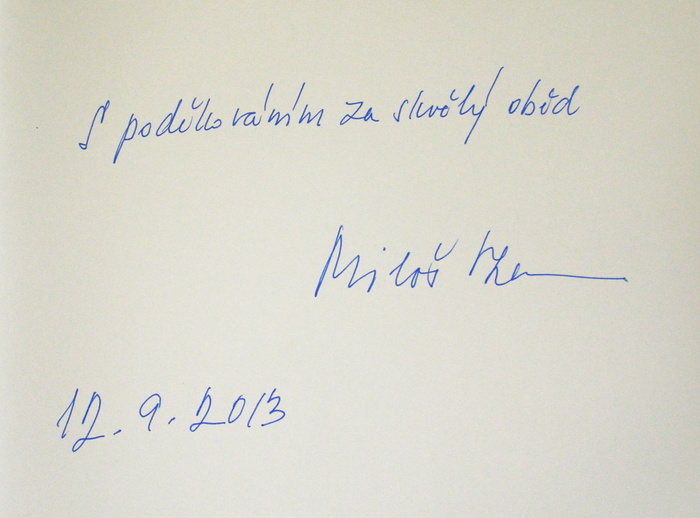 S poděkováním za skvělý oběd
Miloš
12. 9. 2013